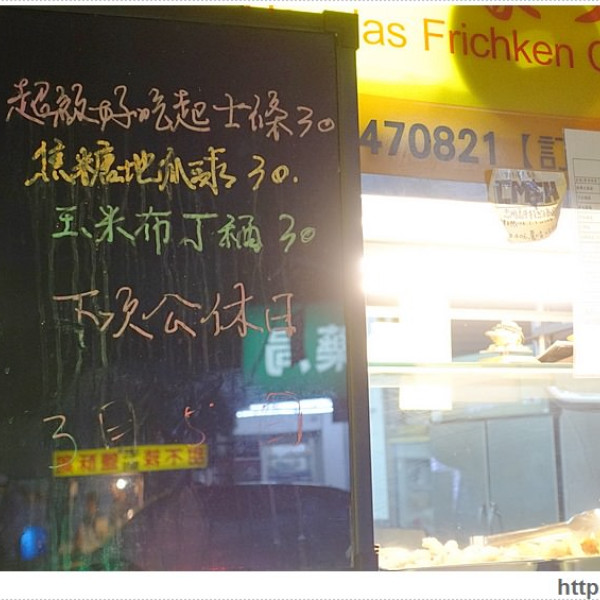 超級好吃起士條30
焦糖地瓜球30.
玉米布丁酥30
下次公休日
3月5日
as Frichken C
470821【訂
藥局
http